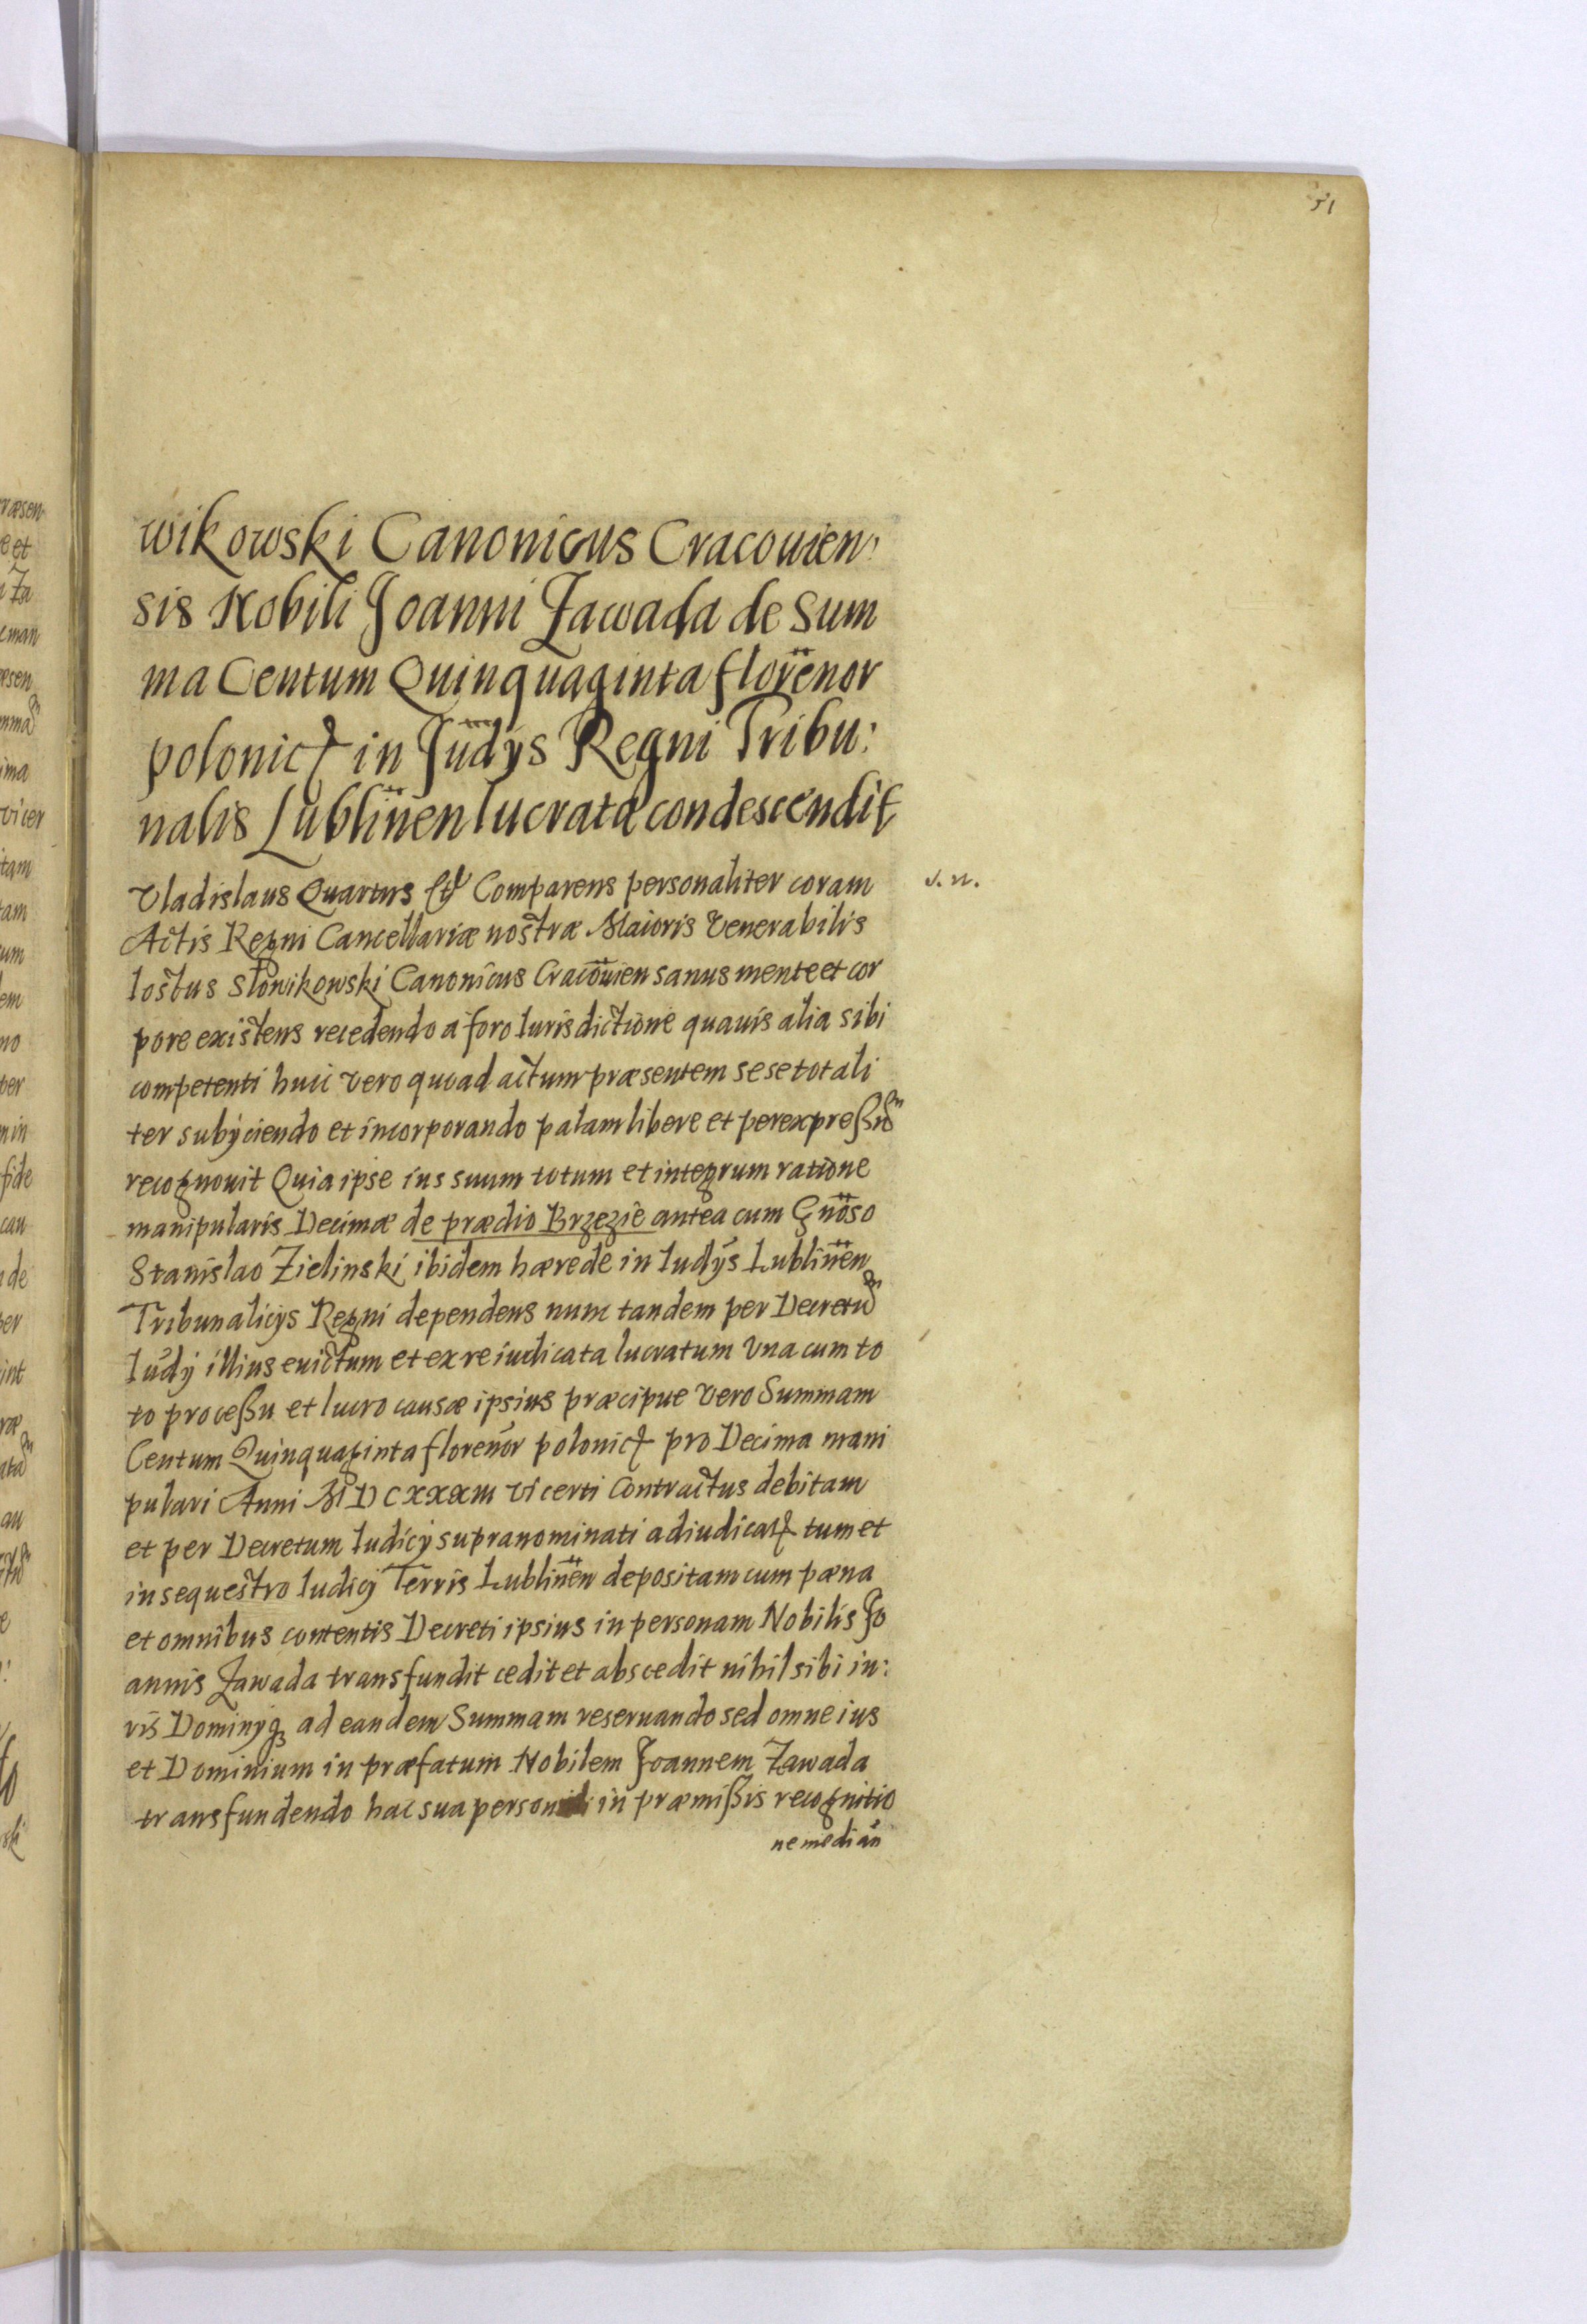 51
wikowski Canonicus Cracouien:
sis Nobili Joanni Zawada de Sum
ma Centum Quinquaginta florenor
polonic in Judys Regni Tribu:
nalis Lublinen lucrata condescendit
Vladislaus Quartus Etc Comparens personaliter coram
J. N.
Actis Regni Cancellariæ nostræ Maioris Venerabilis
Iostus Słowikowski Canonicus Cracouien sanus mente et cor
pore existens recedendo a foro Iurisdictione quauis alia sibi
competenti huic vero quoad actum præsentem sese totali
ter subÿciendo et incorporando palam libere et per expressum
recognouit Quia ipse ius suum totum et integrum ratione
manipularis Decimæ de prædio Brzezie antea cum Gnoso
Stanislao Zielinski ibidem hærede in Iudÿs Lublinen
Tribunalicÿs Regni dependens nunc tandem per Decretum
Iudÿ illius euictum et ex re iudicata lucratum Vna cum to
to processu et lucro causæ ipsius præcipue Vero Summam
Centum Quinquaginta florenor polonic pro Decima mani
pulari Anni MDCXXXIII vi certi Contractus debitam
et per Decretum Iudicÿ supranominati adiudicat tum et
in sequestro Iudicÿ Terris Lublinen depositam cum pæna
et omnibus contentis Decreti ipsius in personam Nobilis Jo
annis Zawada transfundit cedit et abscedit nihil sibi iu:
ris Dominÿq ad eandem Summam reseruando sed omne ius
et Dominium in præfatum Nobilem Joannem Zawada
transfundendo hac sua personali in præmissis recognitio
ne median